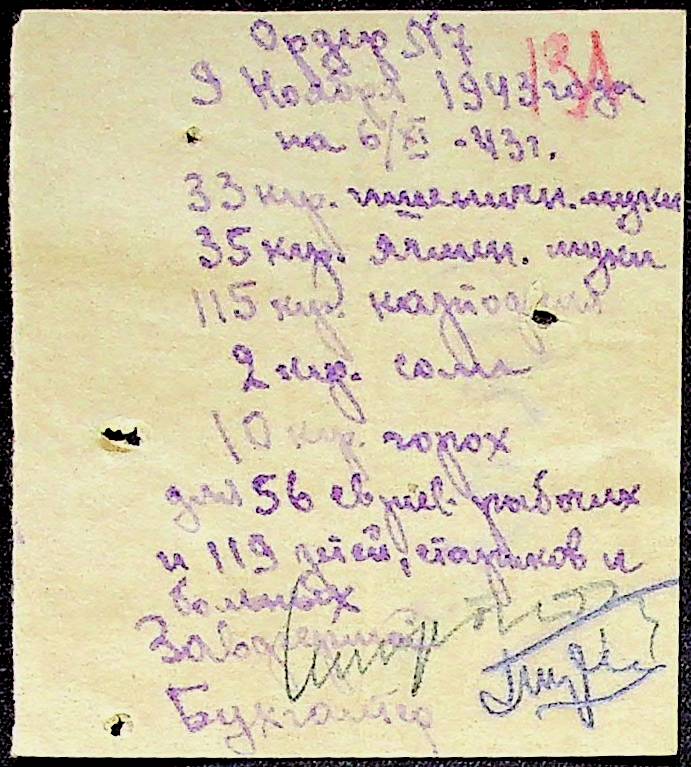 Ордер N7
131
9 Ноября 1943 года
на 6/XI - 43г.
33 кгр. пшеничн. муки
35 кгр. ячмен. муки
115 кгр. картофеля
2 кгр. соли
10 кгр. горох
для 56 евреев. рабочих
и 119 детей, стариков и
больных
Заведующий
Бухгалтер